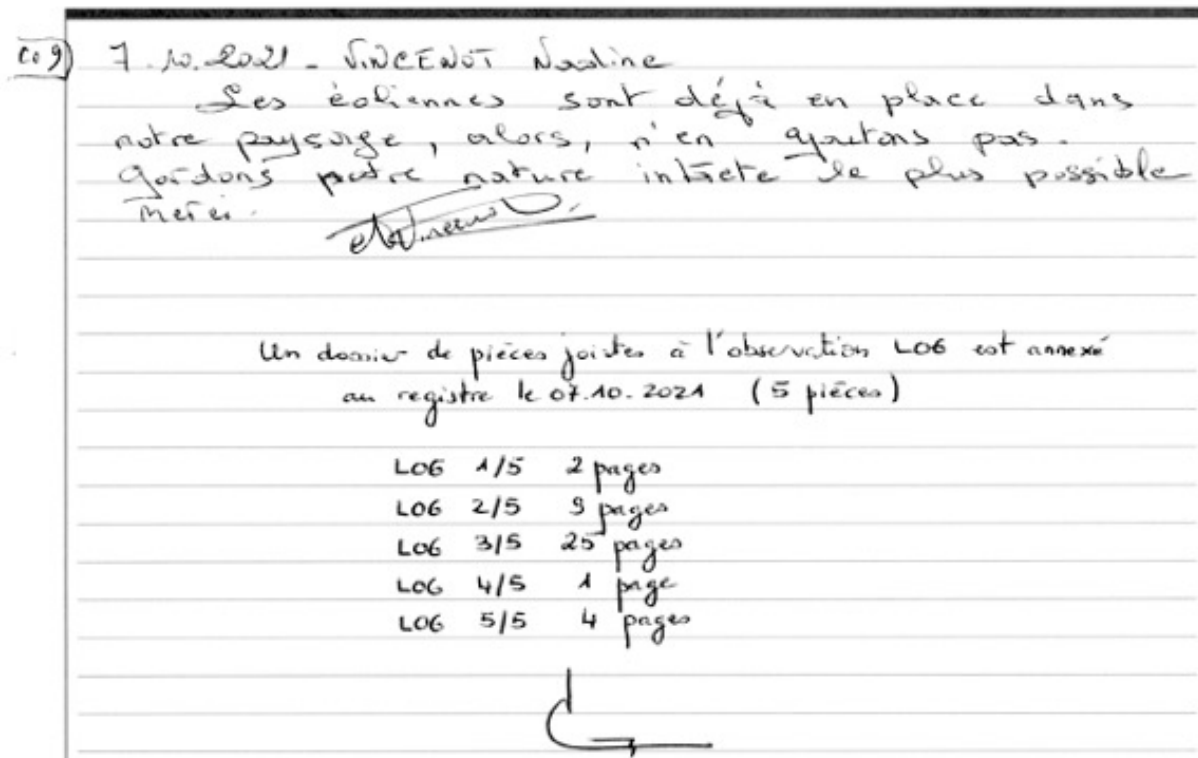 Co 9) 7.10.2021 - VINCENOT Nadine
Les éoliennes sont déjà en place dans
notre paysage, alors, n'en ajoutons pas.
Gardons notre nature intacte le plus possible
merci.
Un dossier de pièces jointes à l'observation L06 est annexé
au registre le 07.10.2021 (5 pièces)
L06 1/5 2 pages
L06 2/5 9 pages
L06 3/5 25 pages
L06 4/5 1 page
L06 5/5 4 pages